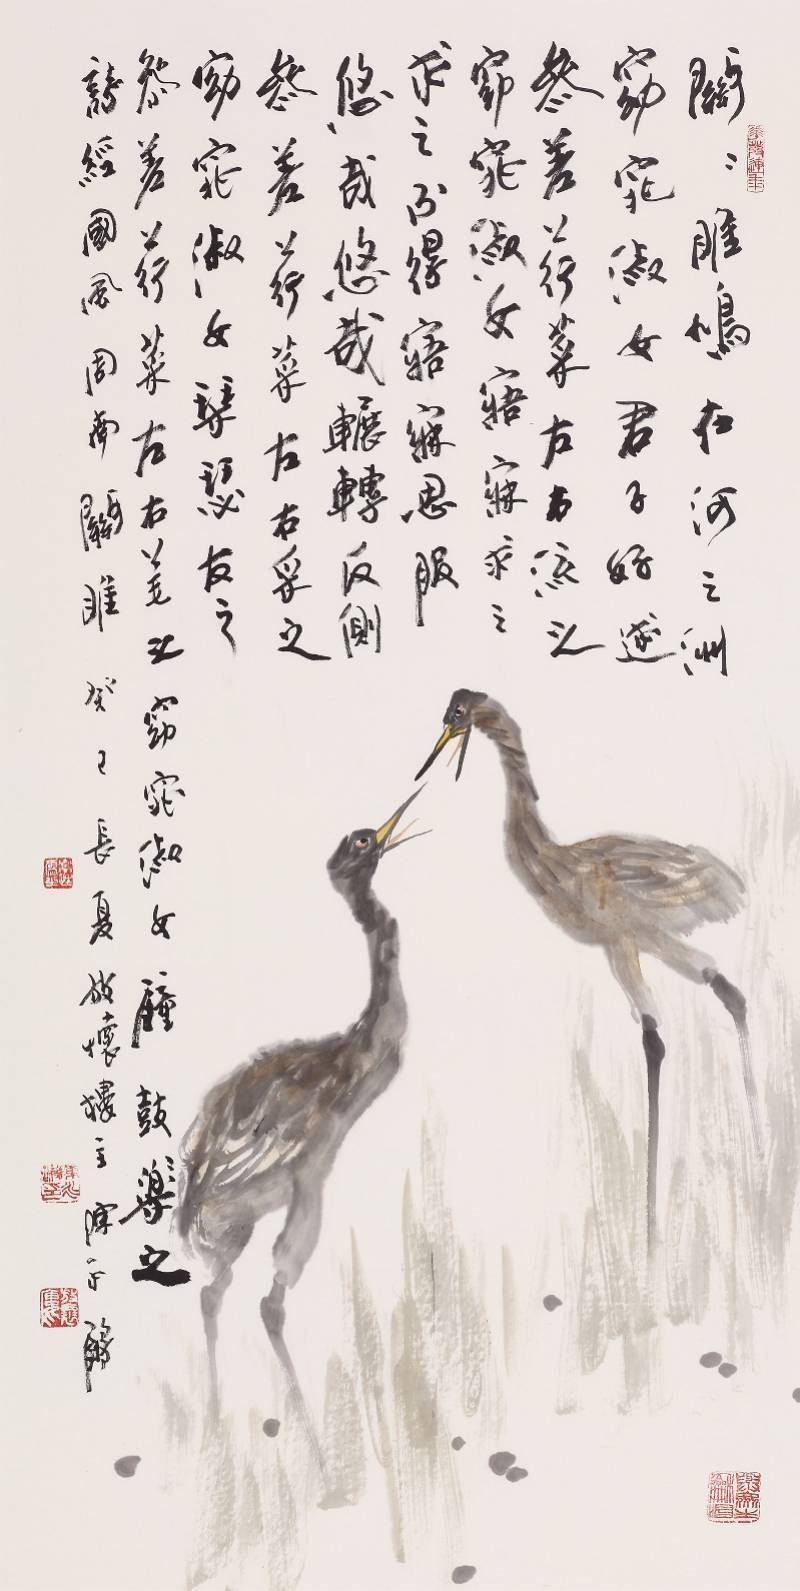 關〻雎鳩在河之洲
窈窕淑女君子好逑
參差荇菜左右流之
窈窕淑女寤寐求之
求之不得寤寐思服
悠哉悠哉輾轉反側
參差荇菜左右采之
窈窕淑女琴瑟友之
參差荇菜左右芼之窈窕淑女鐘鼓樂之
詩經國風周南關雎癸巳長夏放懷樓主